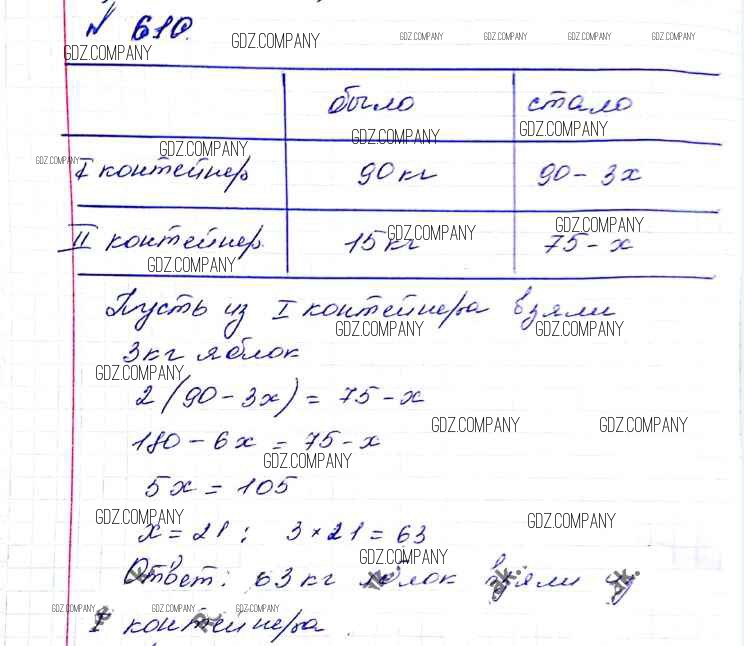 № 610.
GDZ.COMPANY GDZ.COMPANY GDZ.COMPANY GDZ.COMPANY GDZ.COMPANY GDZ.COMPANY
было стало
GDZ.COMPANY GDZ.COMPANY GDZ.COMPANY GDZ.COMPANY
I контейнер 90 кг 90 - 3x
GDZ.COMPANY GDZ.COMPANY
II контейнер 15 кг 75 - x
GDZ.COMPANY
Пусть из I контейнера взяли
GDZ.COMPANY GDZ.COMPANY
3 кг яблок
GDZ.COMPANY
2 (90 - 3x) = 75 - x
GDZ.COMPANY GDZ.COMPANY
180 - 6x = 75 - x
GDZ.COMPANY
5x = 105
GDZ.COMPANY GDZ.COMPANY
x = 21; 3 × 21 = 63
GDZ.COMPANY
Ответ: 63 кг яблок взяли из
GDZ.COMPANY GDZ.COMPANY GDZ.COMPANY
I контейнера.